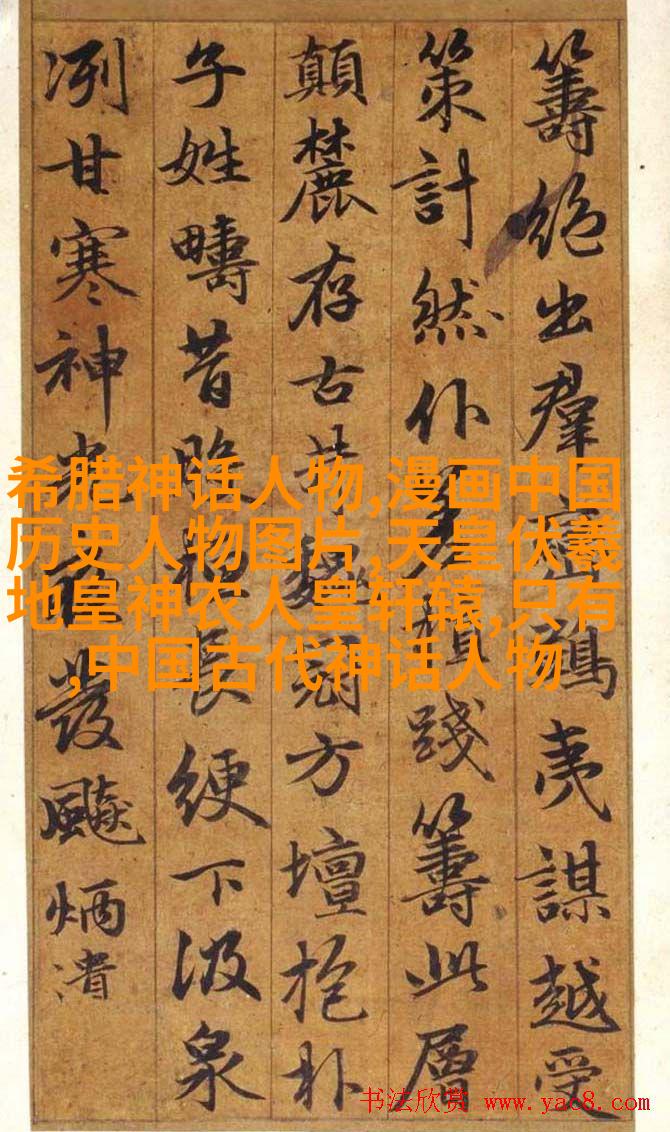 籌絕出羣鴟夷謀越受
策計然仆踐籌此層
顛麓存古昔冠方壇抱朴
子姓疇昔長綆下汲泉
冽甘寒神發飈炳潰
希腊神话人物,漫画中国
历史人物图片,天皇伏羲
地皇神农人皇轩辕,只有
,中国古代神话人物
书法欣赏 www.yac8.com